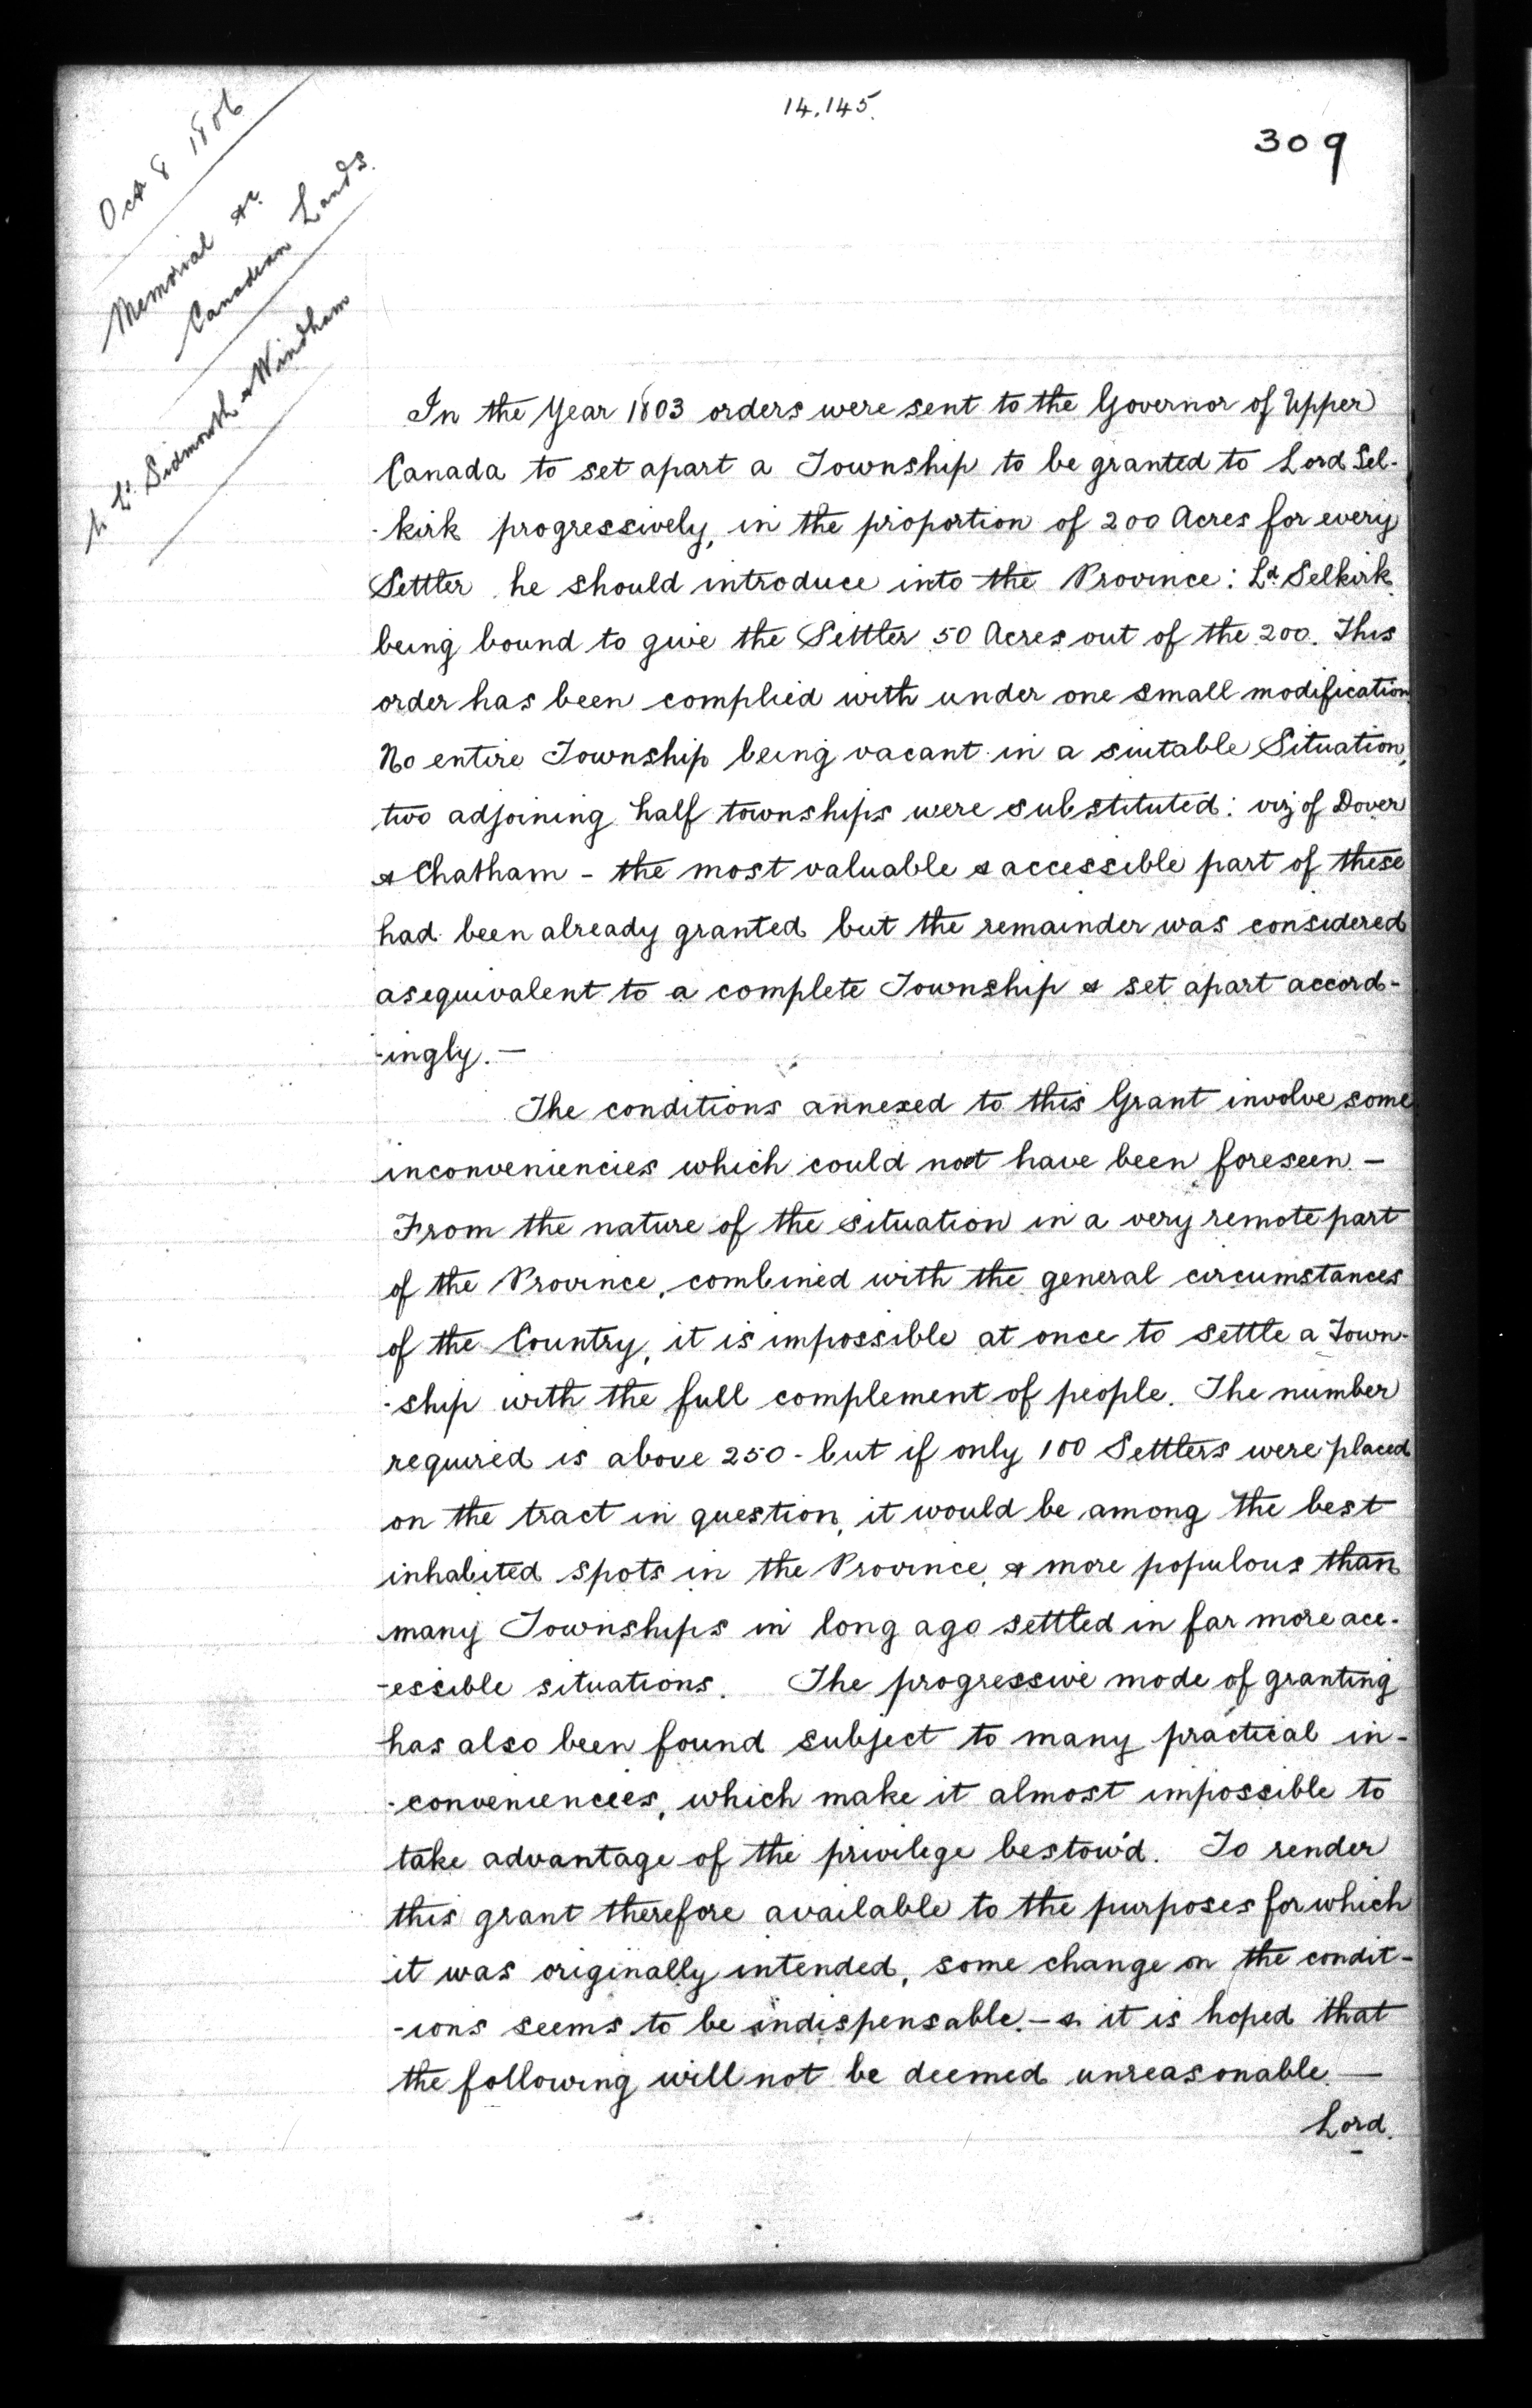 14.145.
309
Oct 8 1806
Memorial &c.
Canadian Lands.
to Ld. Sidmouth & Windham
In the Year 1803 orders were sent to the Governor of Upper
Canada to set apart a Township to be granted to Lord Sel-
-kirk progressively, in the proportion of 200 Acres for every
Settler he should introduce into the Province: Ld. Selkirk
being bound to give the Settler 50 Acres out of the 200. This
order has been complied with under one small modification
No entire Township being vacant in a suitable Situation,
two adjoining half townships were substituted: viz of Dover
& Chatham - the most valuable & accessible part of these
had been already granted but the remainder was considered
as equivalent to a complete Township & set apart accord-
-ingly. —
The conditions annexed to this Grant involve some
inconveniencies which could not have been foreseen. —
From the nature of the situation in a very remote part
of the Province, combined with the general circumstances
of the Country, it is impossible at once to settle a Town-
-ship with the full complement of people. The number
required is above 250 - but if only 100 Settlers were placed
on the tract in question, it would be among the best
inhabited spots in the Province, & more populous than
many Townships in long ago settled in far more acc-
-essible situations. The progressive mode of granting
has also been found subject to many practical in-
-conveniencees, which make it almost impossible to
take advantage of the privilege bestow'd. To render
this grant therefore available to the purposes for which
it was originally intended, some change on the condit-
-ions seems to be indispensable. — & it is hoped that
the following will not be deemed unreasonable —
Lord.